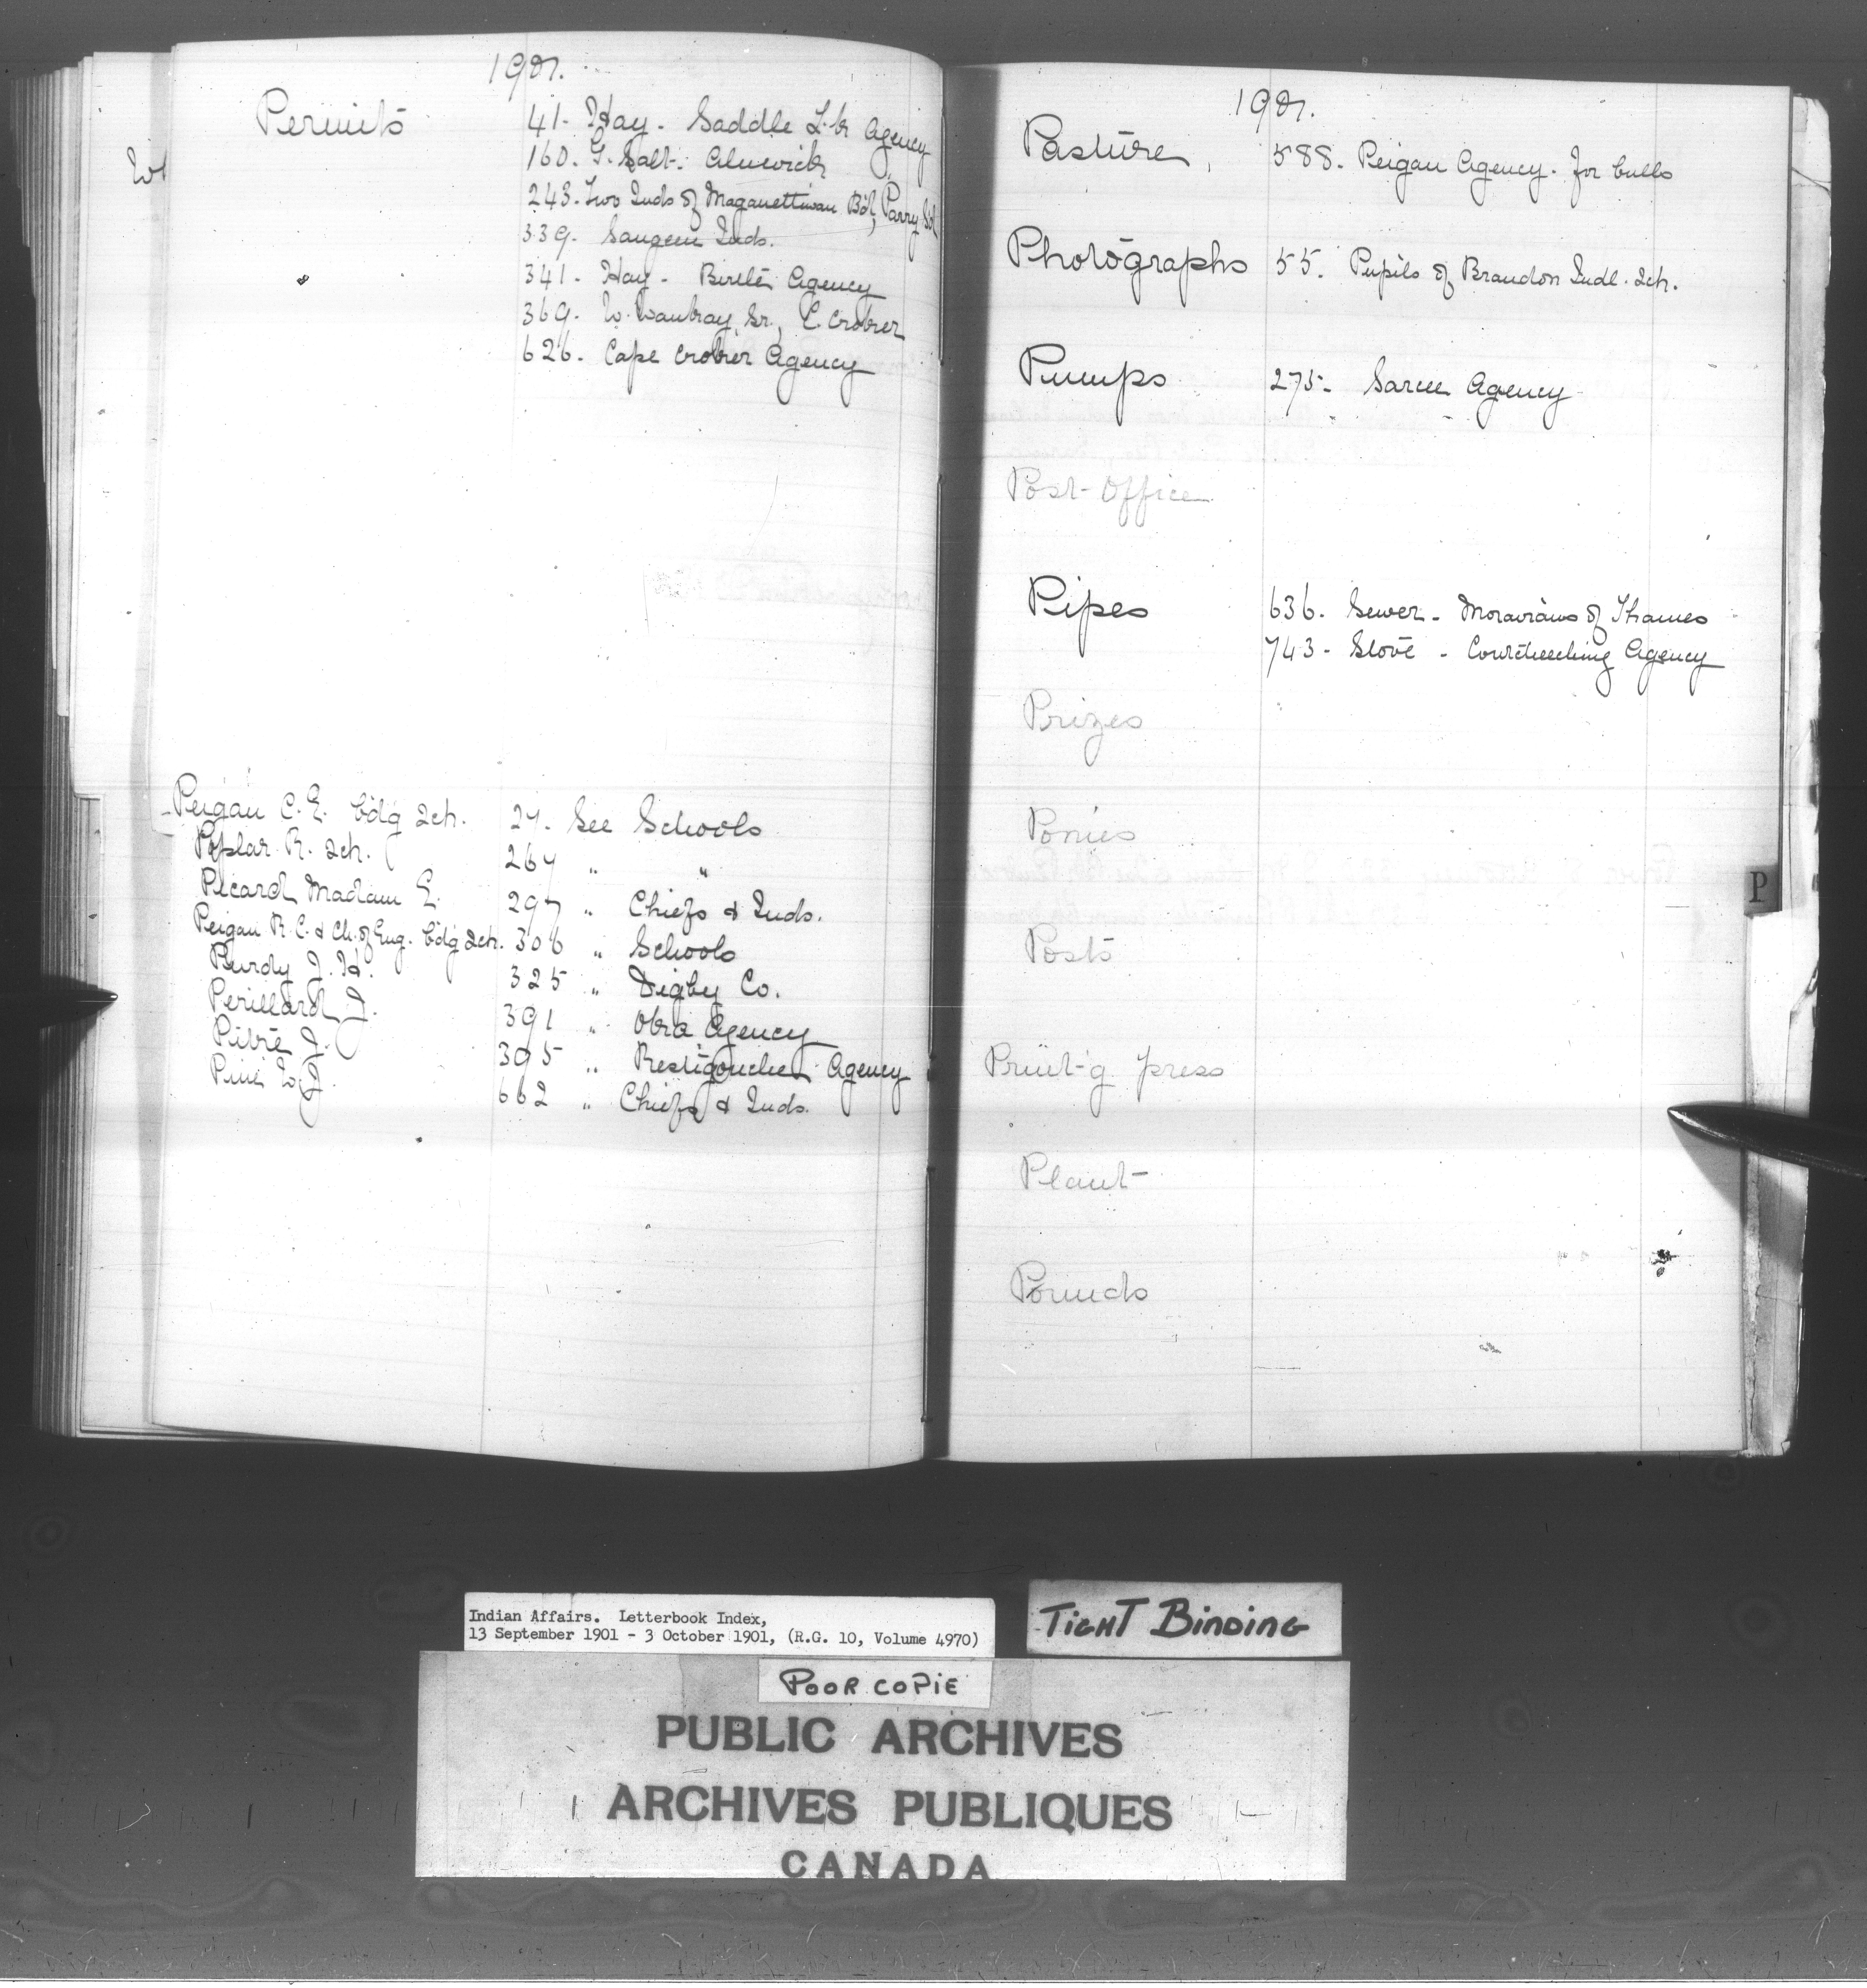 1901.
Permits
41- Hay - Saddle L.k Agency
160. G. Salt- Alnwick
243. Two Inds of Maganettiwan Bd, Parry Sd
339. Saugeen Inds.
341- Hay - Birtle Agency
369. W. Waubray, Sr., C. Croker
626. Cape Croker Agency
Peigan C.E. bdg Sch. 27. See Schools
Poplar R. Sch. 267 " "
Picard Madam E. 297 " Chiefs & Inds.
Peigan R.C. & Ch. of Eng. bdg Sch. 306 " Schools
Purdy J. H. 325 " Digby Co.
Perillard J. 391 " Oka Agency
J. 395 " Restigouche Agency
662 " Chiefs & Inds.
1901.
Pasture, 588. Peigan Agency. for bulls
Photographs 55. Pupils of Brandon Indl. Sch.
Pumps 275- Sarcee Agency
Post-Office
Pipes 636. Sewer - Moravians of Thames
743 - Stove - Coutcheeching Agency
Prizes
Ponies
P
Posts
Print-g press
Plant
Pounds
Indian Affairs. Letterbook Index,
13 September 1901 - 3 October 1901, (R.G. 10, Volume 4970)
TIGHT BINDING
POOR COPIE
PUBLIC ARCHIVES
ARCHIVES PUBLIQUES
CANADA